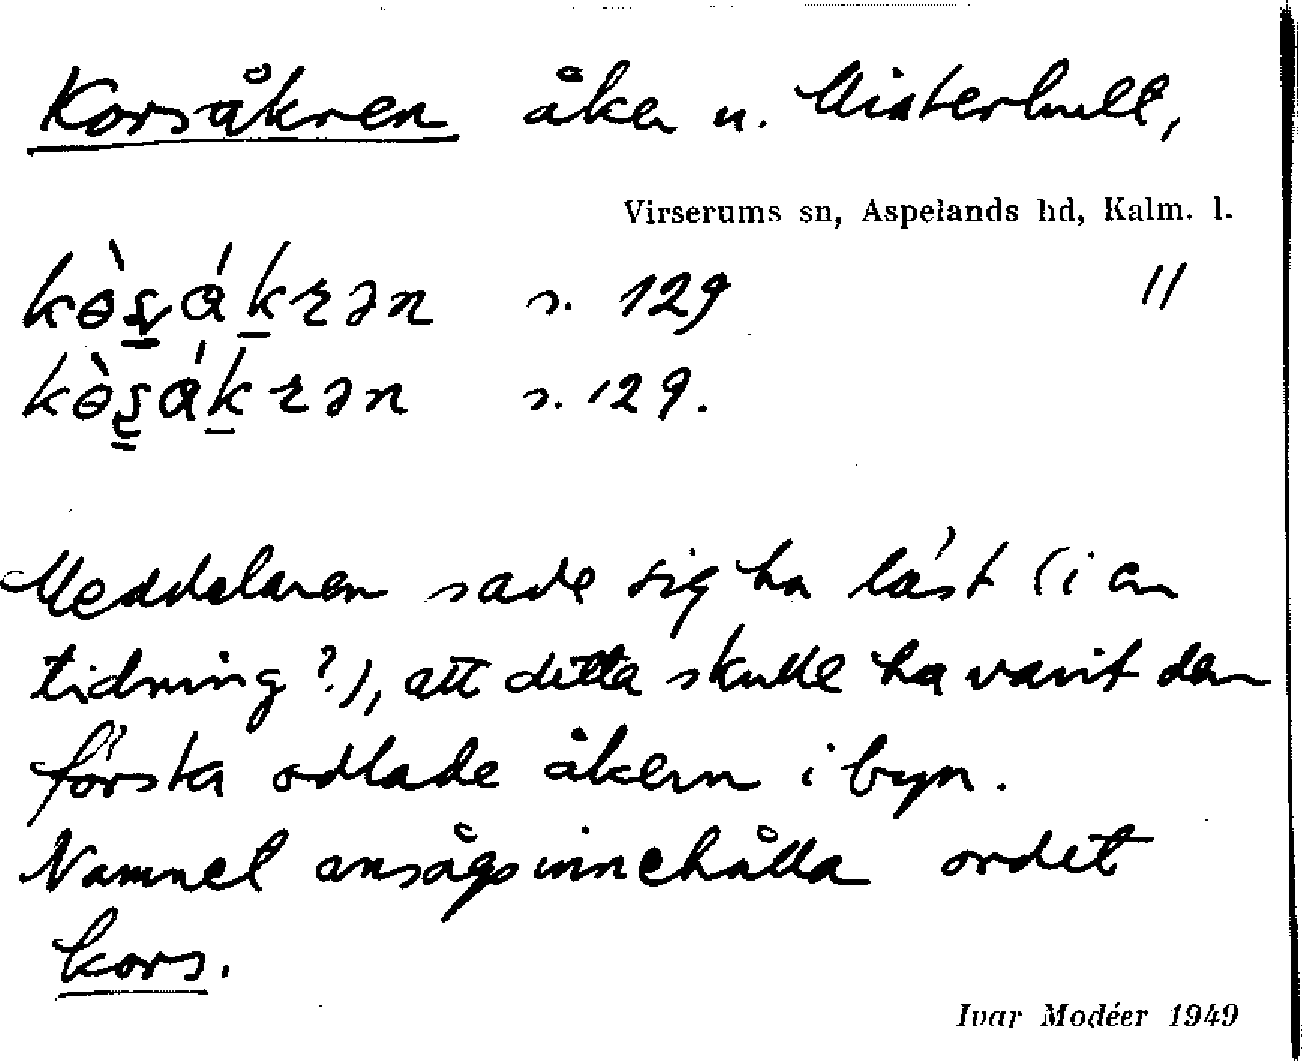 Korsåkren åker u. Misterhult,
Virserums sn, Aspelands hd, Kalm. l.
s. 129 //
s. 129.
Meddelaren sade sig ha läst (i en
tidning?), att detta skulle ha varit den
första odlade åkern i byn.
Namnet ansågs innehålla ordet
kors.
Ivar Modéer 1949